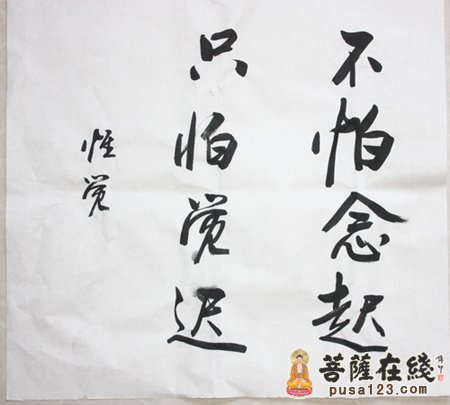 不怕念起
只怕觉迟
惟觉
菩薩在綫
pusa123.com